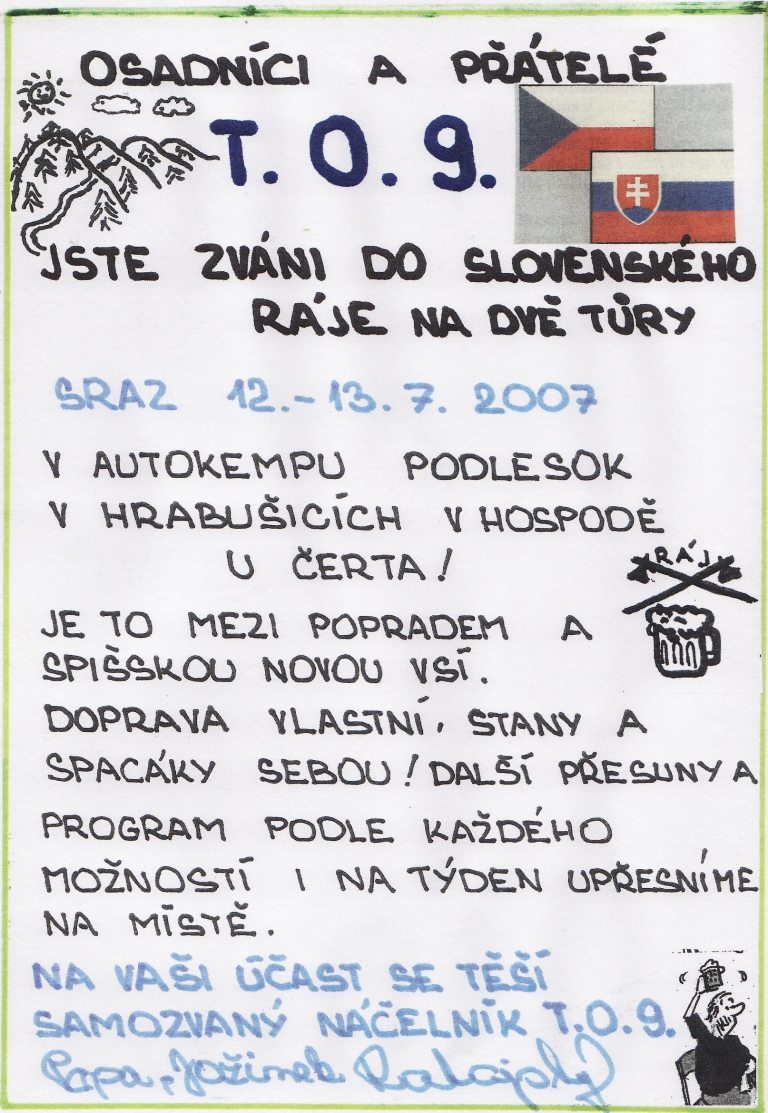 OSADNÍCI A PŘÁTELÉ
T. O. 9.
JSTE ZVÁNI DO SLOVENSKÉHO
RÁJE NA DVĚ TŮRY
SRAZ 12.-13. 7. 2007
V AUTOKEMPU PODLESOK
V HRABUŠICÍCH V HOSPODĚ
U ČERTA!
RÁJ
JE TO MEZI POPRADEM A
SPIŠSKOU NOVOU VSÍ.
DOPRAVA VLASTNÍ, STANY A
SPACÁKY SEBOU! DALŠÍ PŘESUNY A
PROGRAM PODLE KAŽDÉHO
MOŽNOSTÍ I NA TÝDEN UPŘESNÍME
NA MÍSTĚ.
NA VAŠI ÚČAST SE TĚŠÍ
SAMOZVANÝ NÁČELNÍK T.O.9.
Pepa "Jožinek